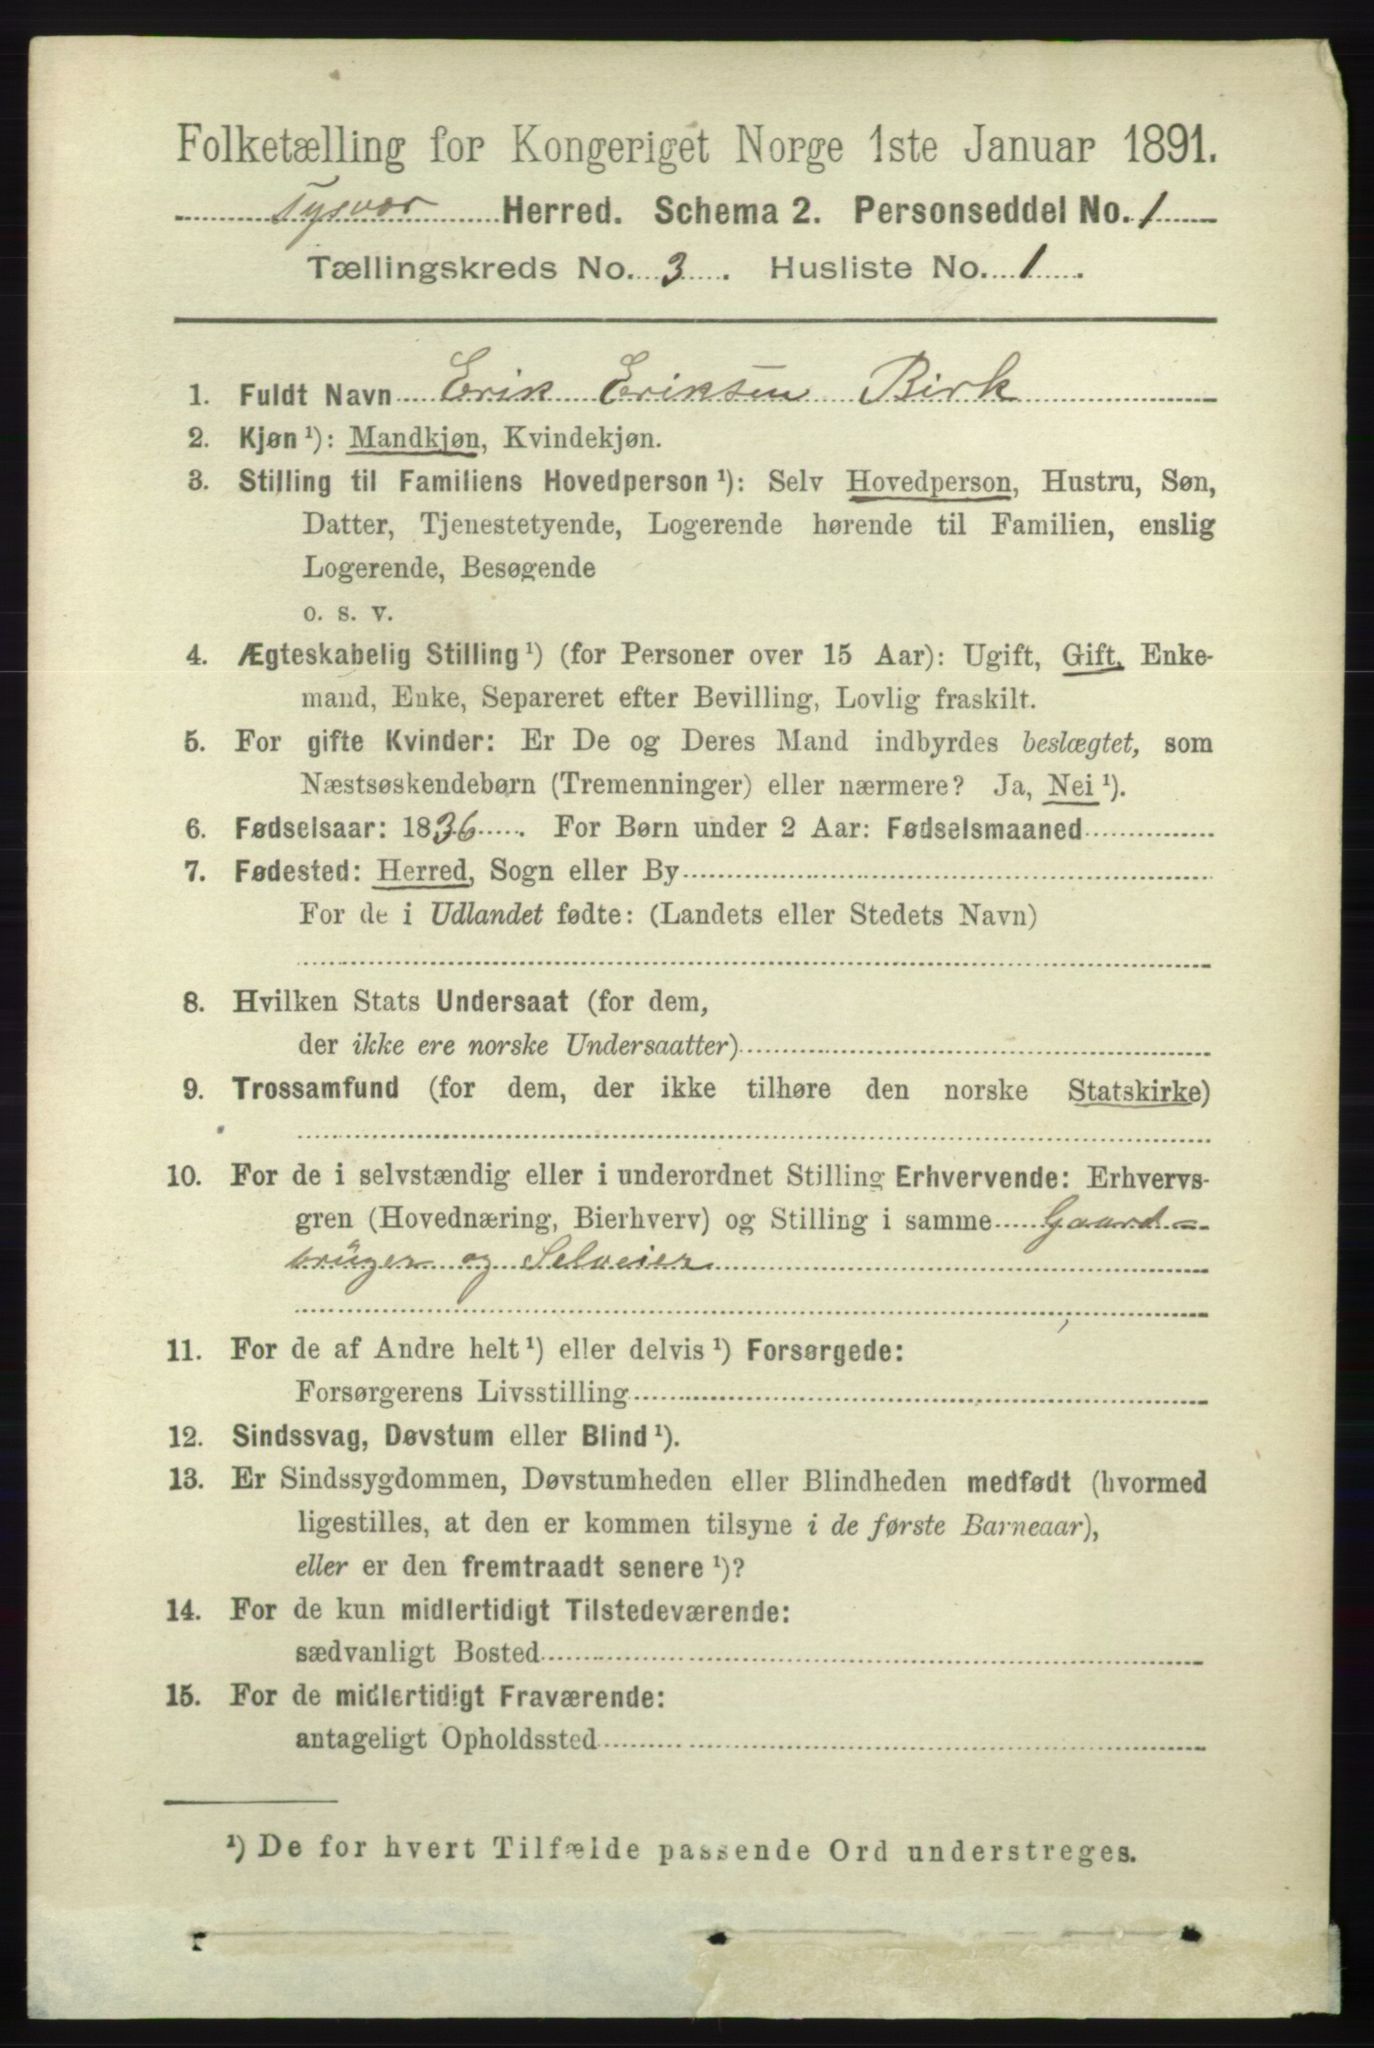 Folketælling for Kongeriget Norge 1ste Januar 1891.
Tysvær Herred. Schema 2. Personseddel No. 1
Tællingskreds No. 3. Husliste No. 1.
1. Fuldt Navn Erik Eriksen Birk
2. Kjøn ¹): Mandkjøn, Kvindekjøn.
3. Stilling til Familiens Hovedperson ¹): Selv Hovedperson, Hustru, Søn,
Datter, Tjenestetyende, Logerende hørende til Familien, enslig
Logerende, Besøgende
o. s. v.
4. Ægteskabelig Stilling ¹) (for Personer over 15 Aar): Ugift, Gift, Enke-
mand, Enke, Separeret efter Bevilling, Lovlig fraskilt.
5. For gifte Kvinder: Er De og Deres Mand indbyrdes beslægtet, som
Næstsøskendebørn (Tremenninger) eller nærmere? Ja, Nei ¹).
6. Fødselsaar: 1836. For Børn under 2 Aar: Fødselsmaaned
7. Fødested: Herred, Sogn eller By
For de i Udlandet fødte: (Landets eller Stedets Navn)
8. Hvilken Stats Undersaat (for dem,
der ikke ere norske Undersaatter)
9. Trossamfund (for dem, der ikke tilhøre den norske Statskirke)
10. For de i selvstændig eller i underordnet Stilling Erhvervende: Erhvervs-
gren (Hovednæring, Bierhverv) og Stilling i samme Gaard-
brüger og Selveier
11. For de af Andre helt ¹) eller delvis ¹) Forsørgede:
Forsørgerens Livsstilling
12. Sindssvag, Døvstum eller Blind ¹).
13. Er Sindssygdommen, Døvstumheden eller Blindheden medfødt (hvormed
ligestilles, at den er kommen tilsyne i de første Barneaar),
eller er den fremtraadt senere ¹)?
14. For de kun midlertidigt Tilstedeværende:
sædvanligt Bosted
15. For de midlertidigt Fraværende:
antageligt Opholdssted
¹) De for hvert Tilfælde passende Ord understreges.